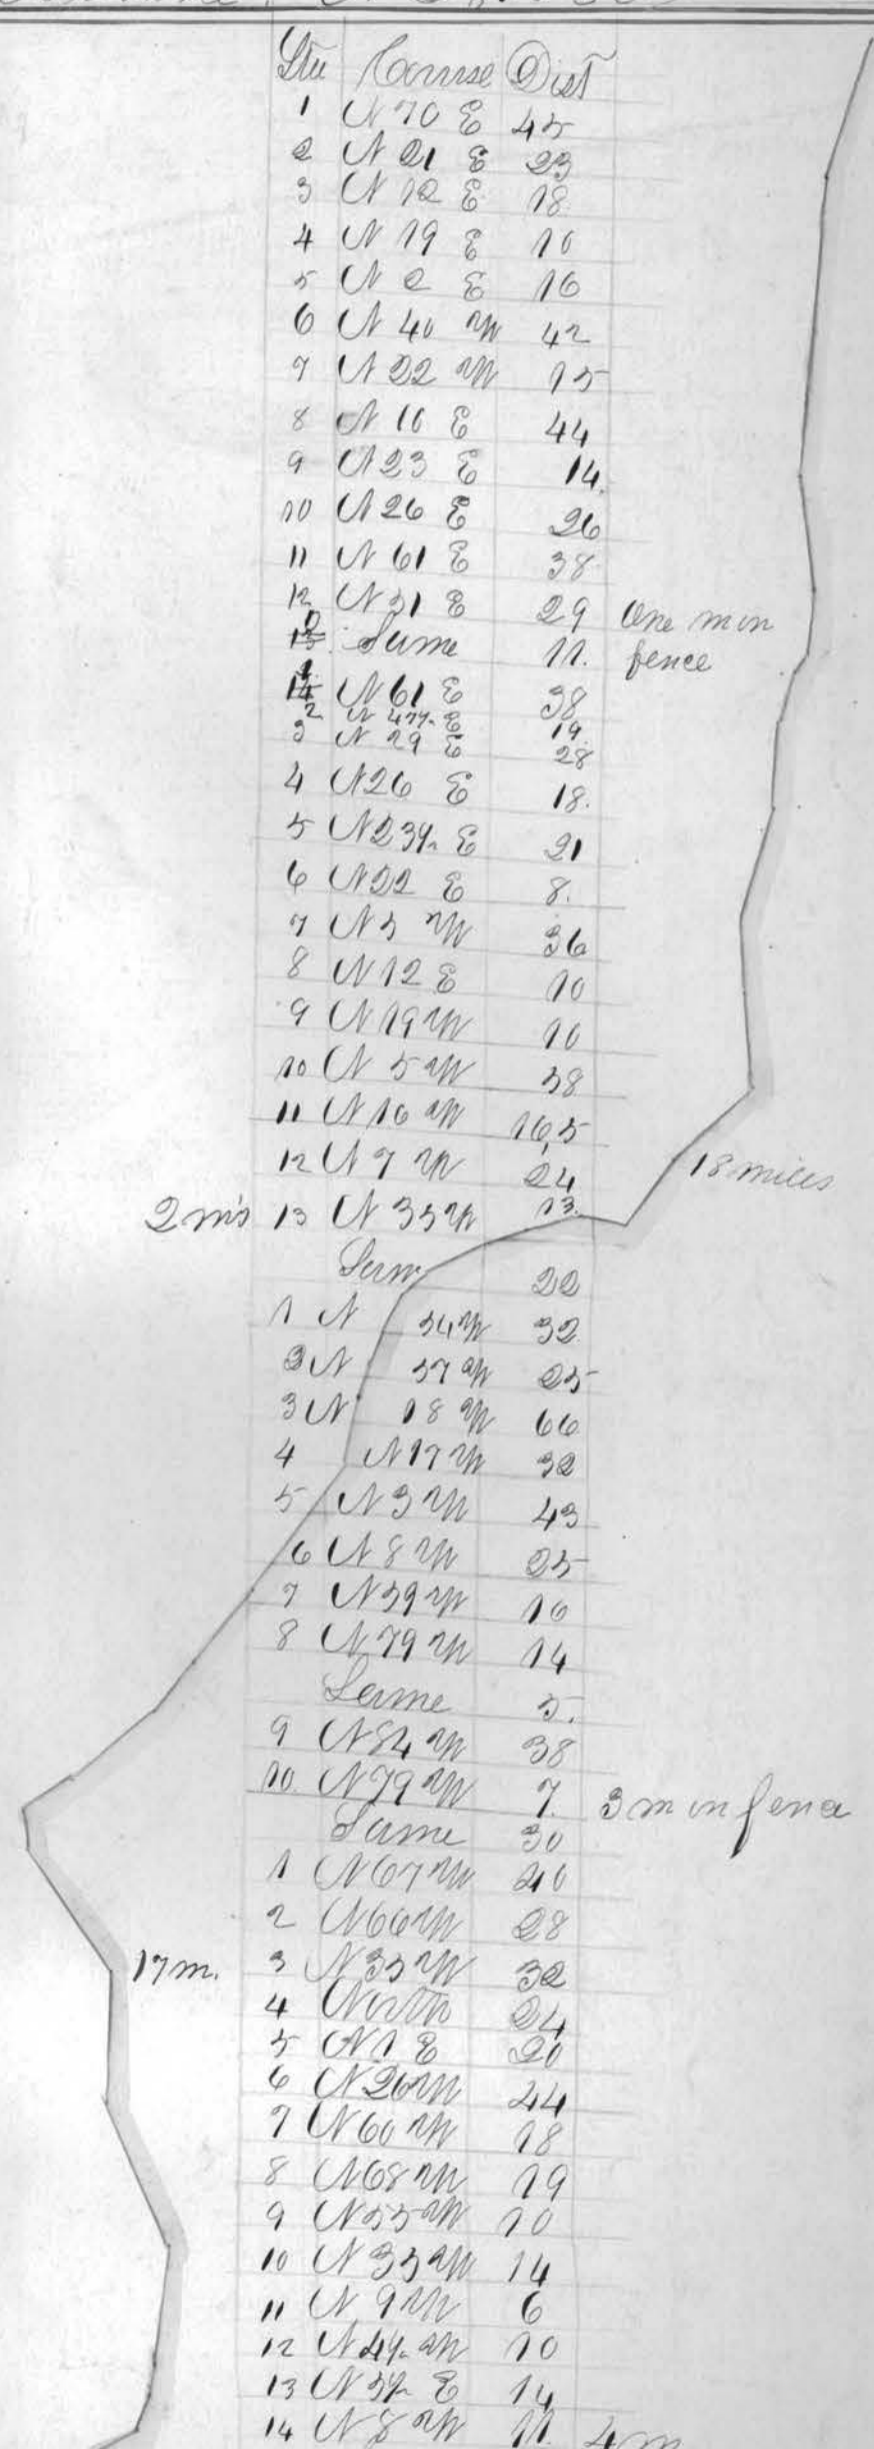 Sta Course Dist
1 N 70 E 45
2 N 21 E 23
3 N 12 E 18
4 N 19 E 10
5 N 2 E 16
6 N 40 W 42
7 N 22 W 15
8 N 10 E 44
9 N 23 E 14
10 N 26 E 26
11 N 61 E 38
12 N 51 E 29 One m in
13 0 Same 11. fence
14 1 N 61 E 38
2 N 47½ E 19
3 N 29 E 28
4 N 26 E 18.
5 N 23½ E 21
6 N 22 E 8.
7 N 5 W 36
8 N 12 E 10
9 N 19 W 10
10 N 5 W 38
11 N 16 W 16,5
12 N 7 W 24
18 miles
2 m's 13 N 35 W 13.
Same 22
1 N 54 W 32
2 N 57 W 25
3 N 18 W 66
4 N 17 W 32
5 N 3 W 43
6 N 8 W 25
7 N 59 W 16
8 N 79 W 14
Same 5.
9 N 84 W 38
10. N 79 W 7. 3 m in fence
Same 30
1 N 67 W 20
2 N 66 W 28
17 m. 3 N 35 W 32
4 North 24
5 N 1 E 20
6 N 26 W 44
7 N 60 W 18
8 N 68 W 19
9 N 55 W 10
10 N 35 W 14
11 N 9 W 6
12 N 4½ W 10
13 N 5½ E 14
14 N 8 W 11. 4 m